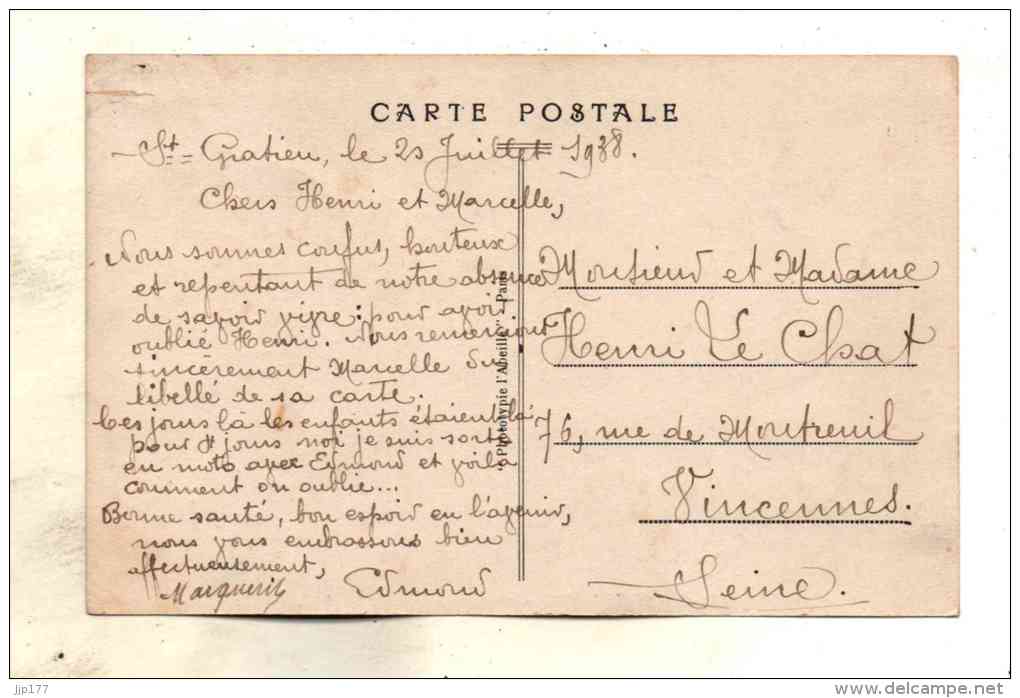 CARTE POSTALE
St Gratien, le 25 Juillet 1938.
Chers Henri et Marcelle,
Nous sommes confus, honteux
et repentant de notre absence
de savoir vivre : pour avoir
oublié Henri. Nous remercions
sincèrement Marcelle du
libellé de sa carte.
Ces jours là les enfants étaient là
pour jours moi je suis sortie
en moto avec Edmond et voilà
comment on oublie...
Bonne santé, bon espoir en l'avenir,
nous vous embrassons bien
affectueusement,
Marguerite Edmond
"Phototypie l'Abeille" - Paris
Monsieur et Madame
Henri Le Chat
76, rue de Montreuil
Vincennes.
Seine.
jjp177
www.delcampe.net